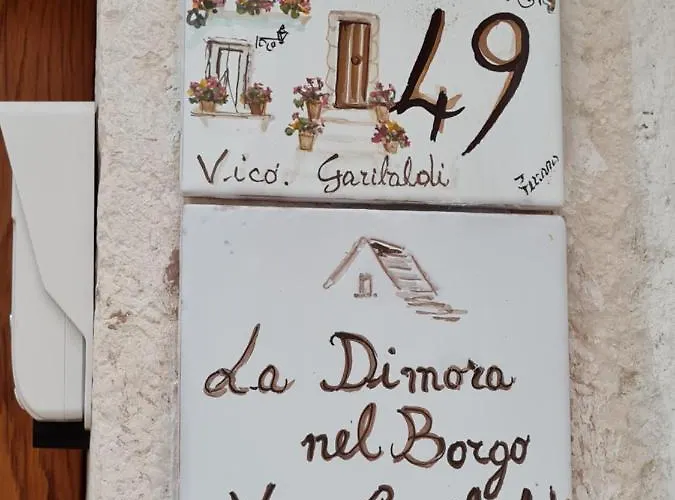 49
Vico. Garibaldi
La Dimora
nel Borgo